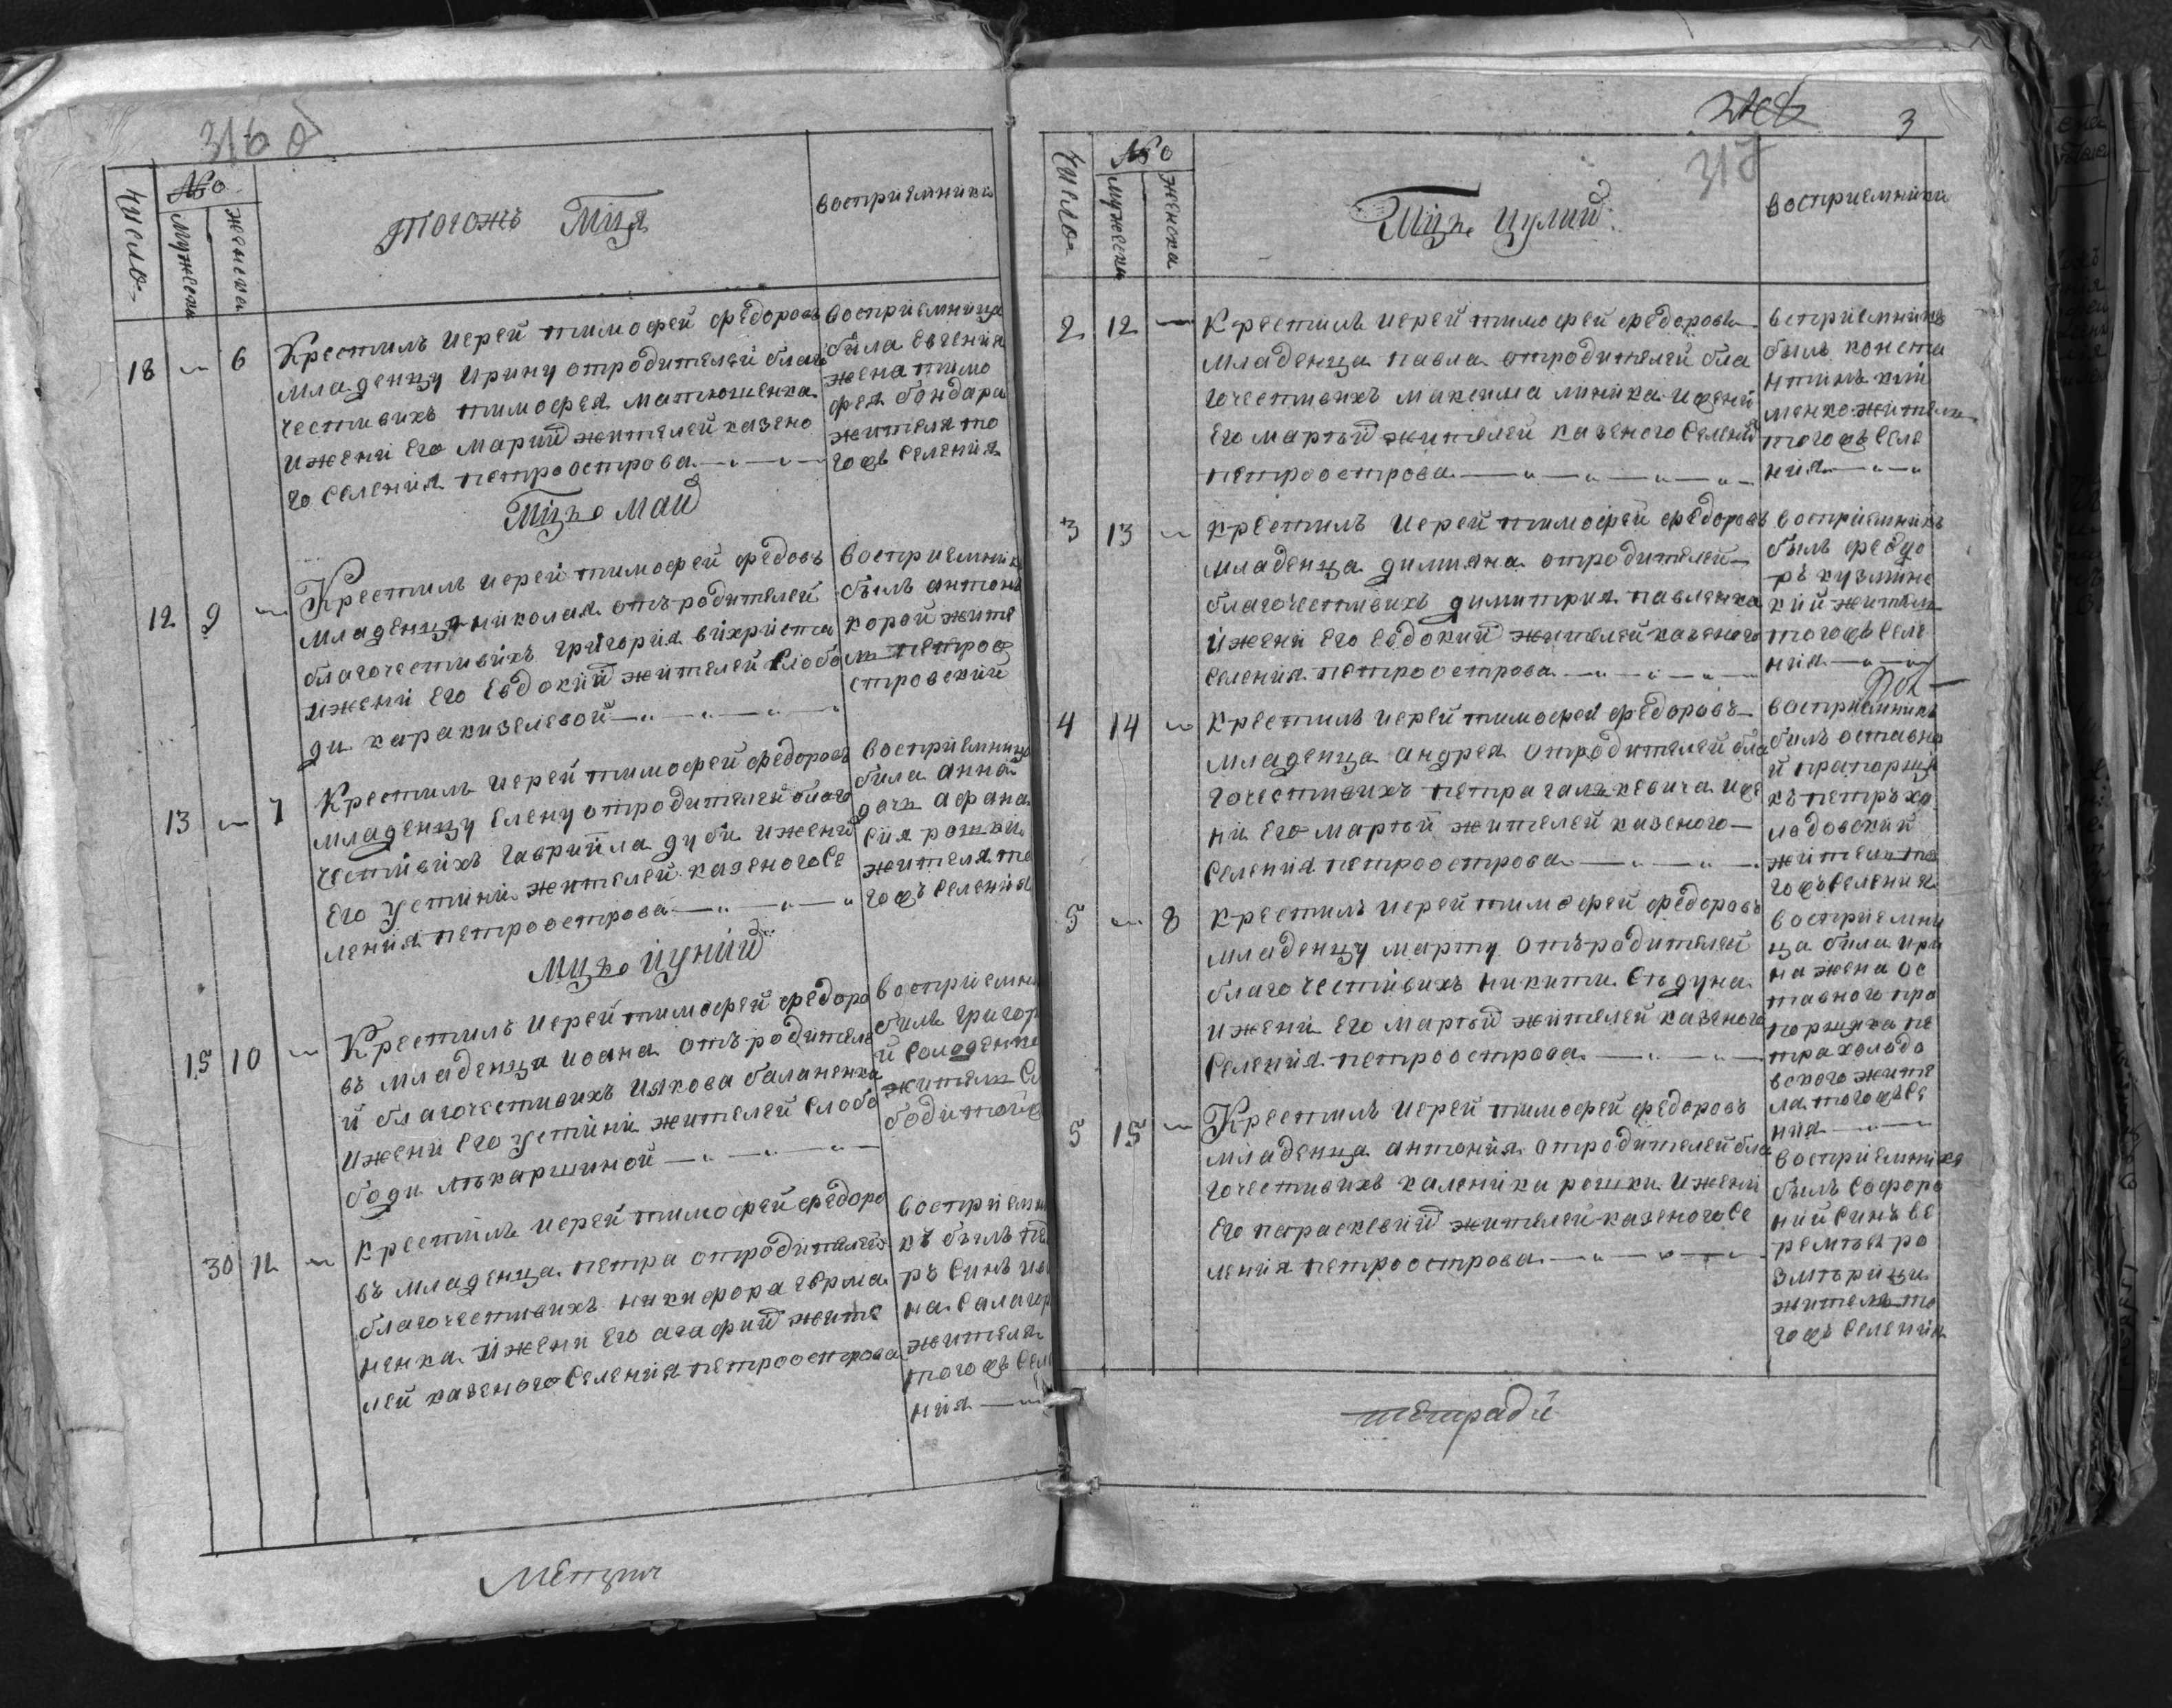 316 о
Число
№о
мужеска
женска
тогожъ Мця
восприемники
18 6
Крестилъ иерей тимофей федоровъ
младенцу ирину отродителей благо
честивихъ тимофея матюшенка
ижени его марий жителей казено
го селения петроострова
восприемница
била евгения
жена тимо
фея бондара
жителя то
гожъ селения
Мцъ маи
12 9
Крестилъ иерей тимофей федовъ
младенца николая отъ родителей
благочестивихъ григория вихриста
ижени его евдокий жителей слобо
ди каракизелевой
восприемникъ
билъ антонъ
корой жите
ль петроо
стровский
13 7
Крестилъ иерей тимофей федоровъ
младенцу елену отродителей благо
честивихъ гаврийла дуби ижени
его устини жителей казеного се
ления петроострова
восприемница
била анна
дочь афана
сия рошки
жителя то
гожъ селения
мцъ иуний
15 10
Крестилъ иерей тимофей федоро
въ младенца иоана отъ родителе
й благочестивихъ иякова баланенка
ижени его устини жителей слобо
боди лпкаршиной
восприемни
билъ григор
й солоденке
жителъ сл
боди той
30 11
Крестилъ иерей тимофей федоро
въ младенца петра отродителей
благочестивихъ никифора герма
ненка ижени его агафий жите
лей казеного селения петроострова
восприемни
къ билъ пе
ръ синъ ив
на салагор
жителя
тогожъ селе
ния
Метрич
3
317
Число
№о
мужеска
женска
Мцъ иулий
восприемники
2 12
Крестилъ иерей тимофей федоровъ
младенца павла отродителей бла
гочестивихъ максима линика ижени
его марфий жителей казеного селений
петроострова
всприемникъ
билъ конста
нтинъ кли
менко житель
тогожъ селе
ния
3 13
крестилъ иерей тимофей федоровъ
младенца димияна отродителей
благочестивихъ димитрия павленка
ижени его евдокий жителей казеного
селения петроострова
восприемникъ
билъ федо
ръ кузмине
кий житель
тогожъ селе
ния
4 14
крестилъ иерей тимофей федоровъ
младенца андрея отродителей бла
гочестивихъ петра галъкевича иже
ни его марфий жителей казеного
селения петроострова
восприемникъ
билъ оставно
й прапорщи
къ петръ хо
лодовский
житель то
гожъ селения
5 8
крестилъ иерей тимофей федоровъ
младенцу марту отъ родителей
благочестивихъ никити съдуна
ижени его марфий жителей казеного
селения петроострова
восприемни
ца била ири
на жена ос
тавного пра
порщика пе
тра холодо
вского жите
ля тогожъ се
ния
5 15
Крестилъ иерей тимофей федоровъ
младенца антония отродителей бла
гочестивихъ каленика рошки ижени
его параскевий жителей казеного се
ления петроострова
восприемникъ
билъ софоро
ний синъ ве
ремъя ро
змърици
житель то
гожъ селения
тетради